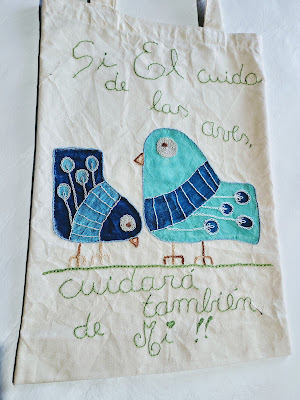 Si El cuida
de
las aves,
cuidará
también
de Mi !!